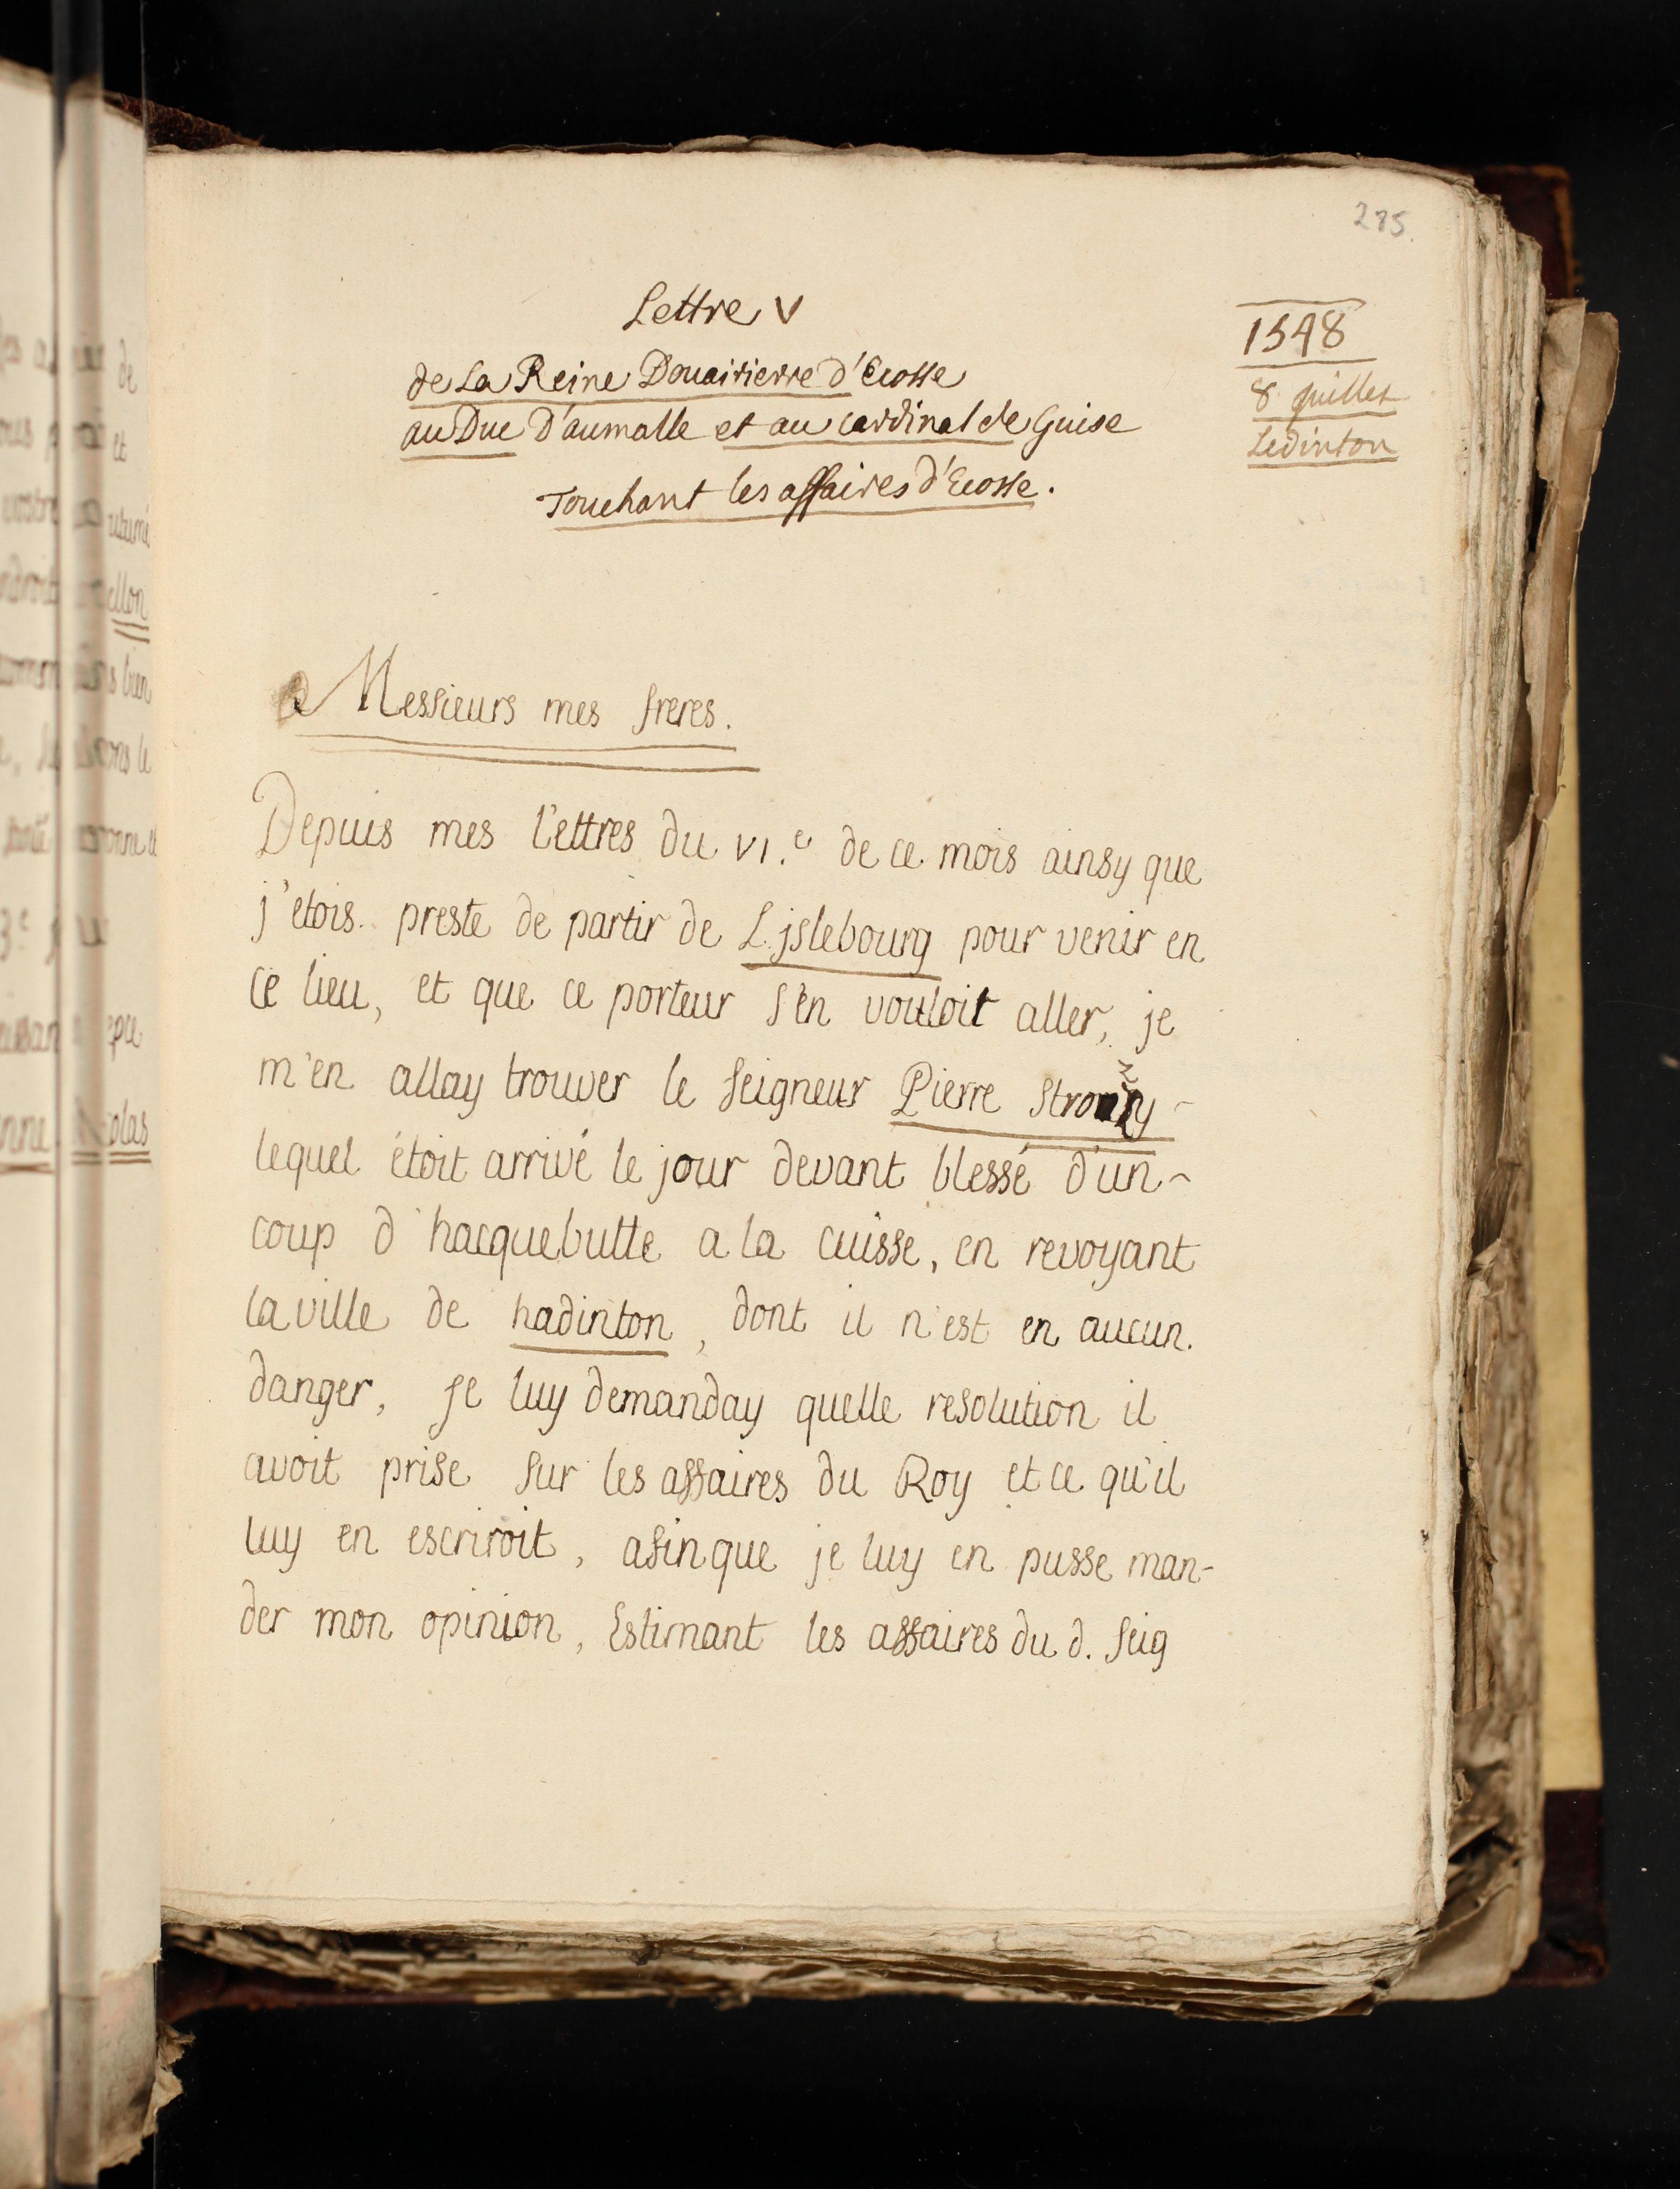 285.
Lettre V
de La Reine Douairierre d'Ecosse
au Duc D'aumalle et au cardinal de Guise
Touchant les affaires d'Ecosse.
1548
8 juillet
Ledinton
Messieurs mes freres.
Depuis mes l'ettres du VI.e de ce mois ainsy que
j'etois preste de partir de L'jslebourg pour venir en
ce lieu, et que ce porteur s'en vouloit aller, je
m'en allay trouver le seigneur Pierre Strozzy
lequel étoit arrivé le jour devant blessé d'un
coup d'hacquebutte a la cuisse, en revoyant
la ville de hadinton, dont il n'est en aucun.
danger, je luy demanday quelle resolution il
avoit prise sur les affaires du Roy et ce qu'il
luy en escriroit, afin que je luy en pusse man-
der mon opinion, Estimant les affaires du d. seig